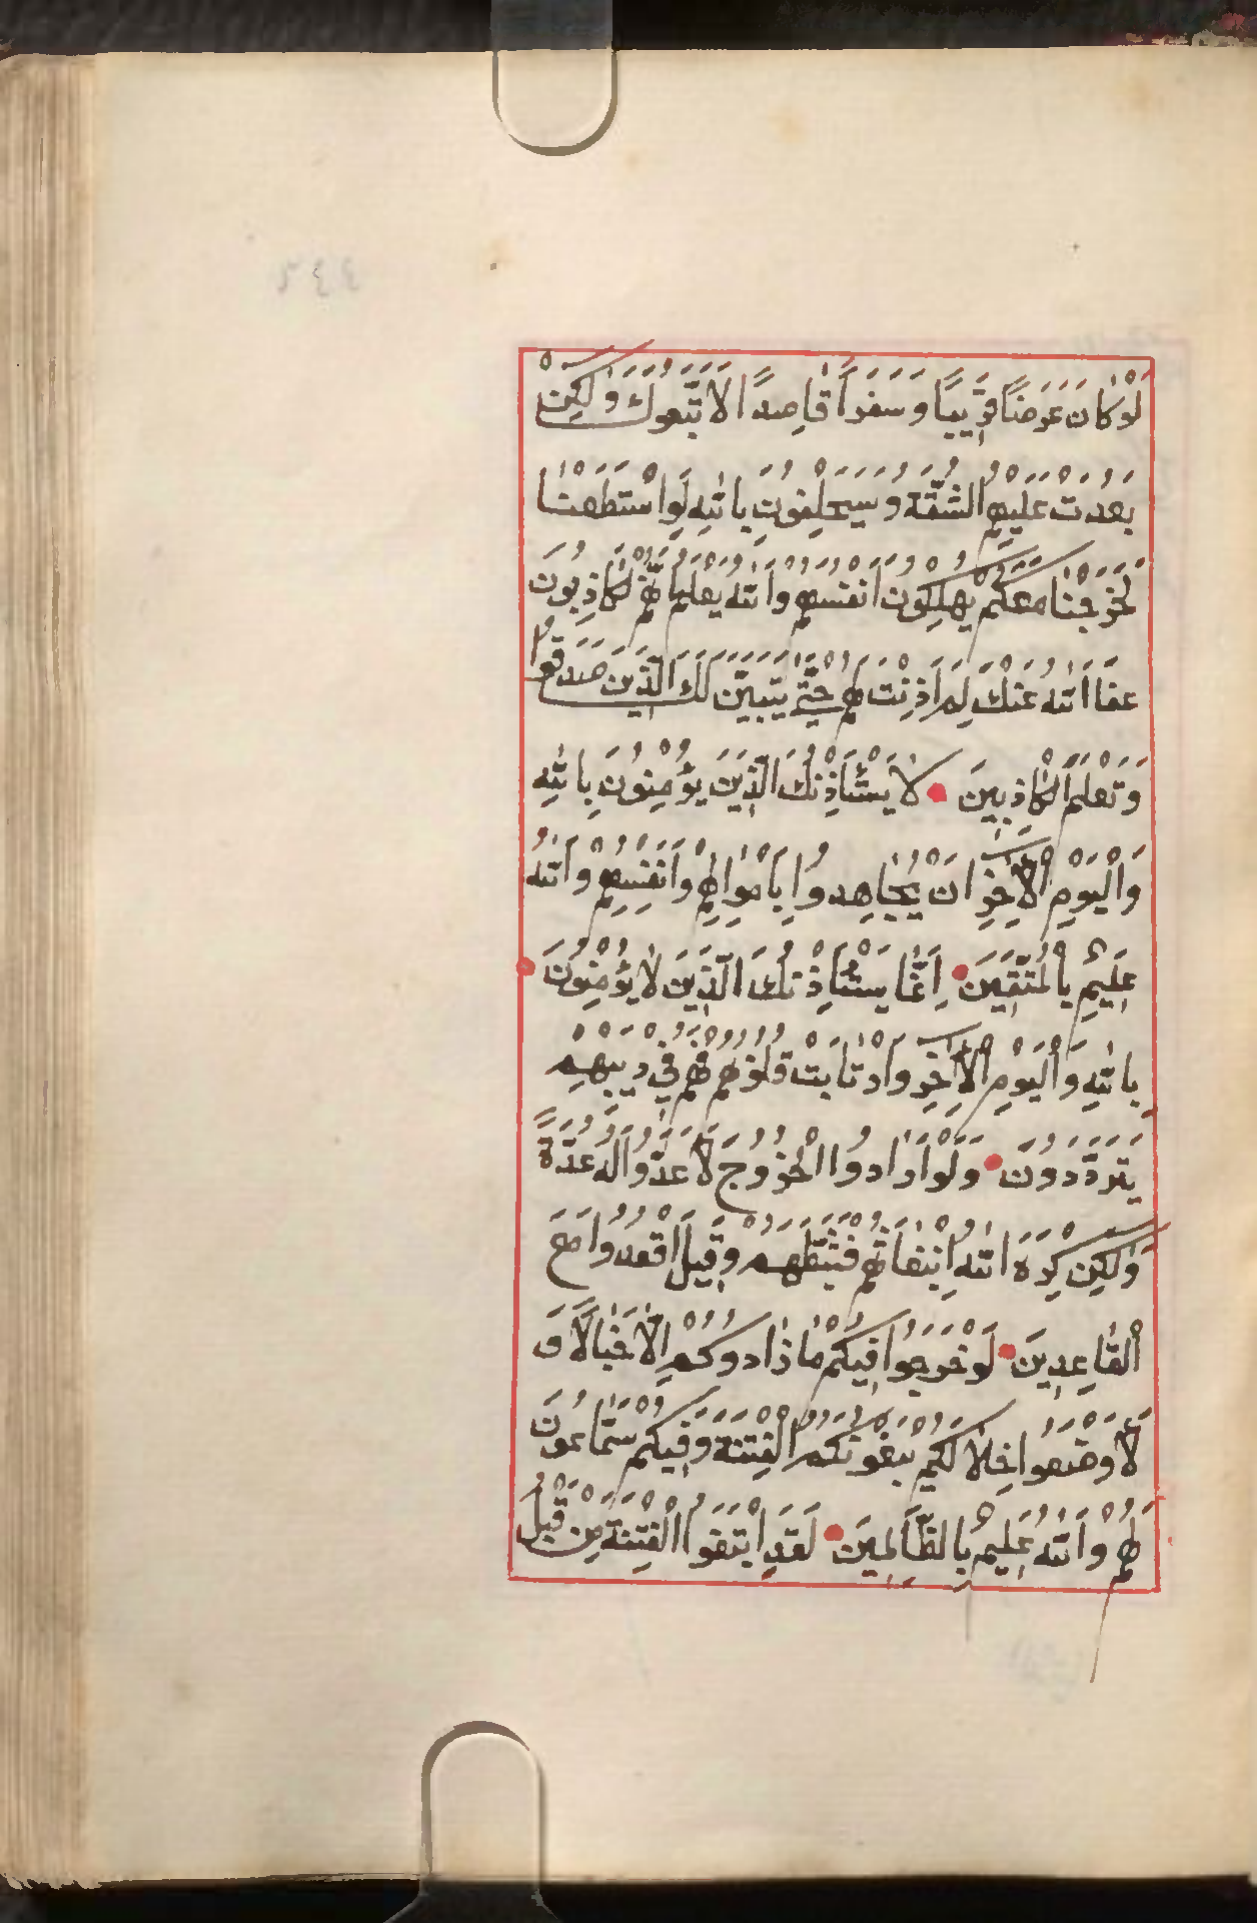 لَوْ كَانَ عَرَضًا قَرِيبًا وَسَفَرًا قَاصِدًا الَاتَّبَعُوكَ وَلَكِنْ
بَعُدَتْ عَلَيْهِمُ الشُّقَّةُ وَسَيَحْلِفُونَ بِاللَّهِ لَوِاسْتَطَعْنَا
لَخَرَجْنَا مَعَكُمْ يُهْلِكُونَ أَنْفُسَهُمْ وَاللَّهُ يَعْلَمُ إِنَّهُمْ لَكَاذِبُونَ
عَفَا اللَّهُ عَنْكَ لِمَ أَذِنْتَ لَهُمْ حَتَّى يَتَبَيَّنَ لَكَ الَّذِينَ صَدَقُوا
وَتَعْلَمَ الْكَاذِبِينَ لَا يَسْتَأْذِنُكَ الَّذِينَ يُؤْمِنُونَ بِاللَّهِ
وَالْيَوْمِ الْآخِرِ أَنْ يُجَاهِدُوا بِأَمْوَالِهِمْ وَأَنْفُسِهِمْ وَاللَّهُ
عَلِيمٌ بِالْمُتَّقِينَ إِنَّمَا يَسْتَأْذِنُكَ الَّذِينَ لَا يُؤْمِنُونَ
بِاللَّهِ وَالْيَوْمِ الْآخِرِ وَارْتَابَتْ قُلُوبُهُمْ فَهُمْ فِي رَيْبِهِمْ
يَتَرَدَّدُونَ وَلَوْ أَرَادُوا الْخُرُوجَ لَأَعَدُّوا لَهُ عُدَّةً
وَلَكِنْ كَرِهَ اللَّهُ انْبِعَاثَهُمْ فَثَبَّطَهُمْ وَقِيلَ اقْعُدُوا مَعَ
الْقَاعِدِينَ لَوْ خَرَجُوا فِيكُمْ مَا زَادُوكُمْ إِلَّا خَبَالًا وَ
لَأَوْضَعُوا خِلَالَكُمْ يَبْغُونَكُمُ الْفِتْنَةَ وَفِيكُمْ سَمَّاعُونَ
لَهُمْ وَاللَّهُ عَلِيمٌ بِالظَّالِمِينَ لَقَدِ ابْتَغَوُا الْفِتْنَةَ مِنْ قَبْلُ